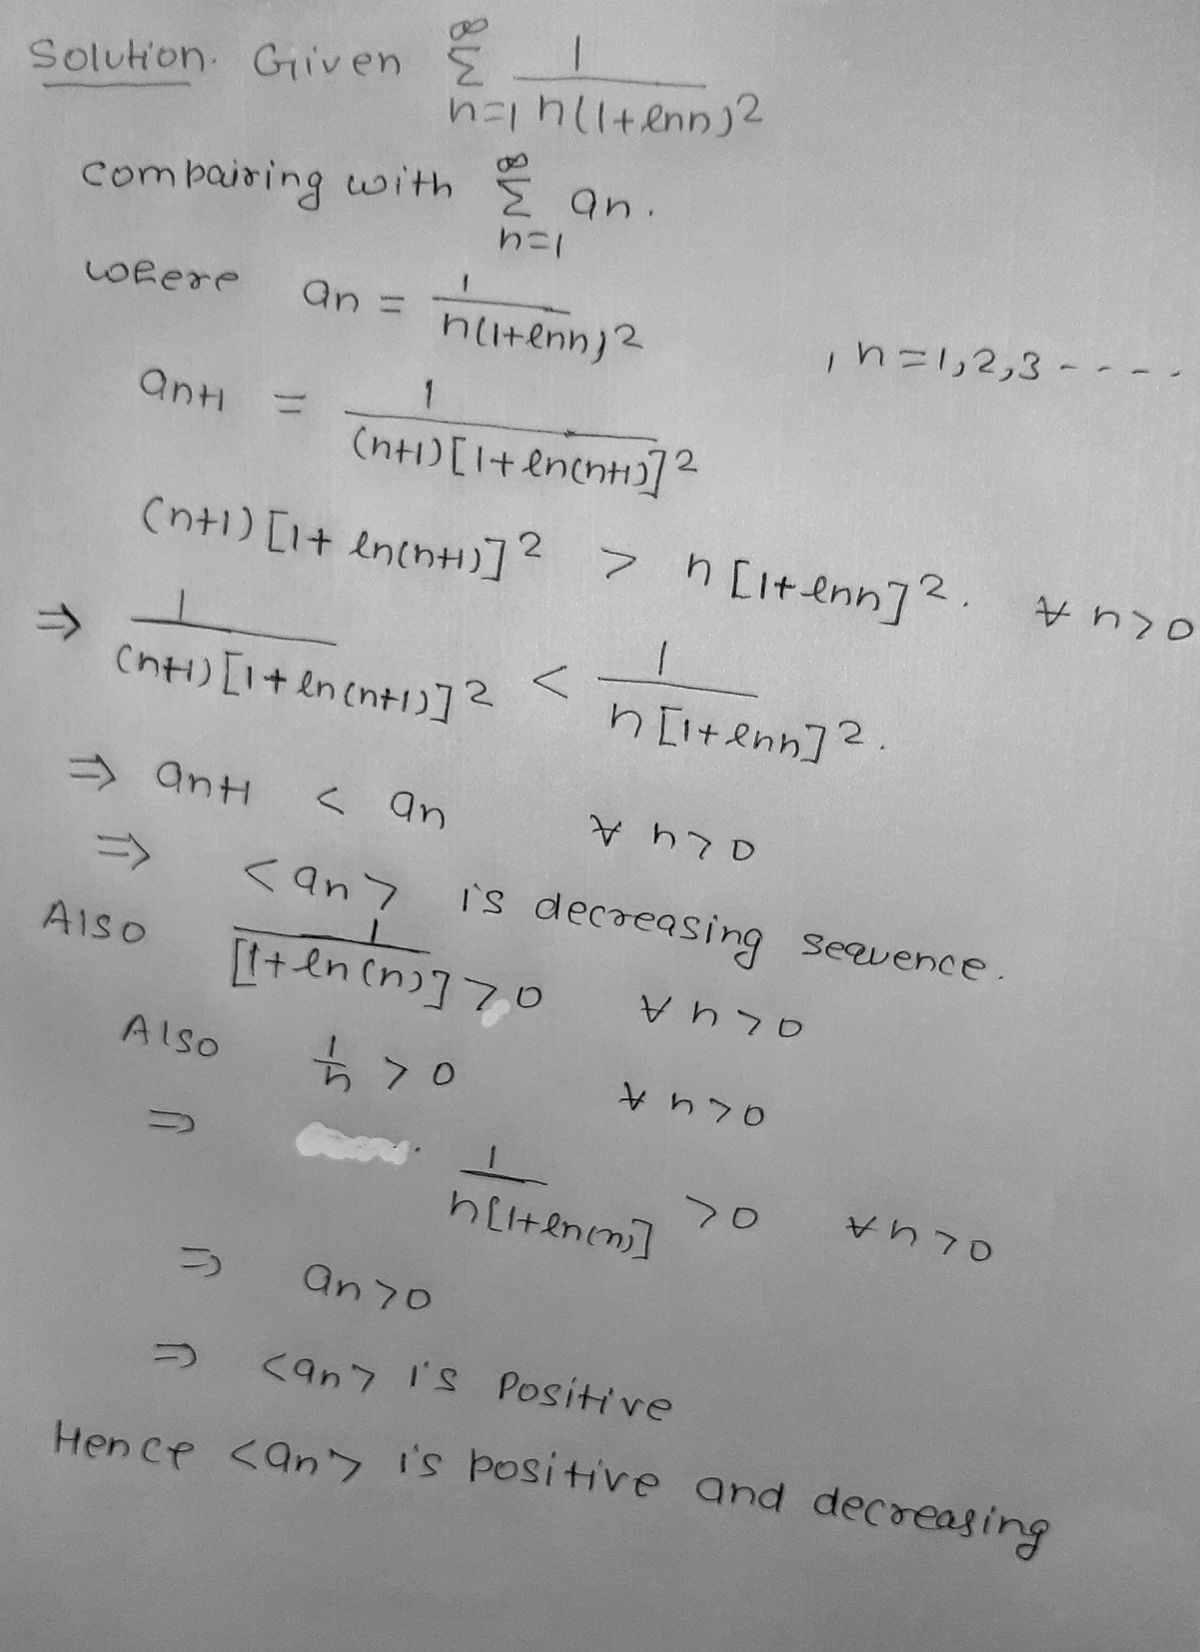 Solution. Given ∞ Σ n=1 1/n(1+lnn)2
combairing with ∞ Σ n=1 an.
where an = 1/n(1+lnn)2 , n=1,2,3 - - - -
an+1 = 1/(n+1)[1+ln(n+1)]2
(n+1)[1+ ln(n+1)]2 > n[1+lnn]2. ∀ n>0
⇒ 1/(n+1)[1+ln(n+1)]2 < 1/n[1+lnn]2.
⇒ an+1 < an ∀ n>0
⇒ <an> is decreasing sequence.
Also 1/[1+ln(n)] >0 ∀ n>0
Also 1/n >0 ∀ n>0
⇒ 1/n[1+ln(n)] >0 ∀n>0
⇒ an>0
⇒ <an> is Positive
Hence <an> is positive and decreasing